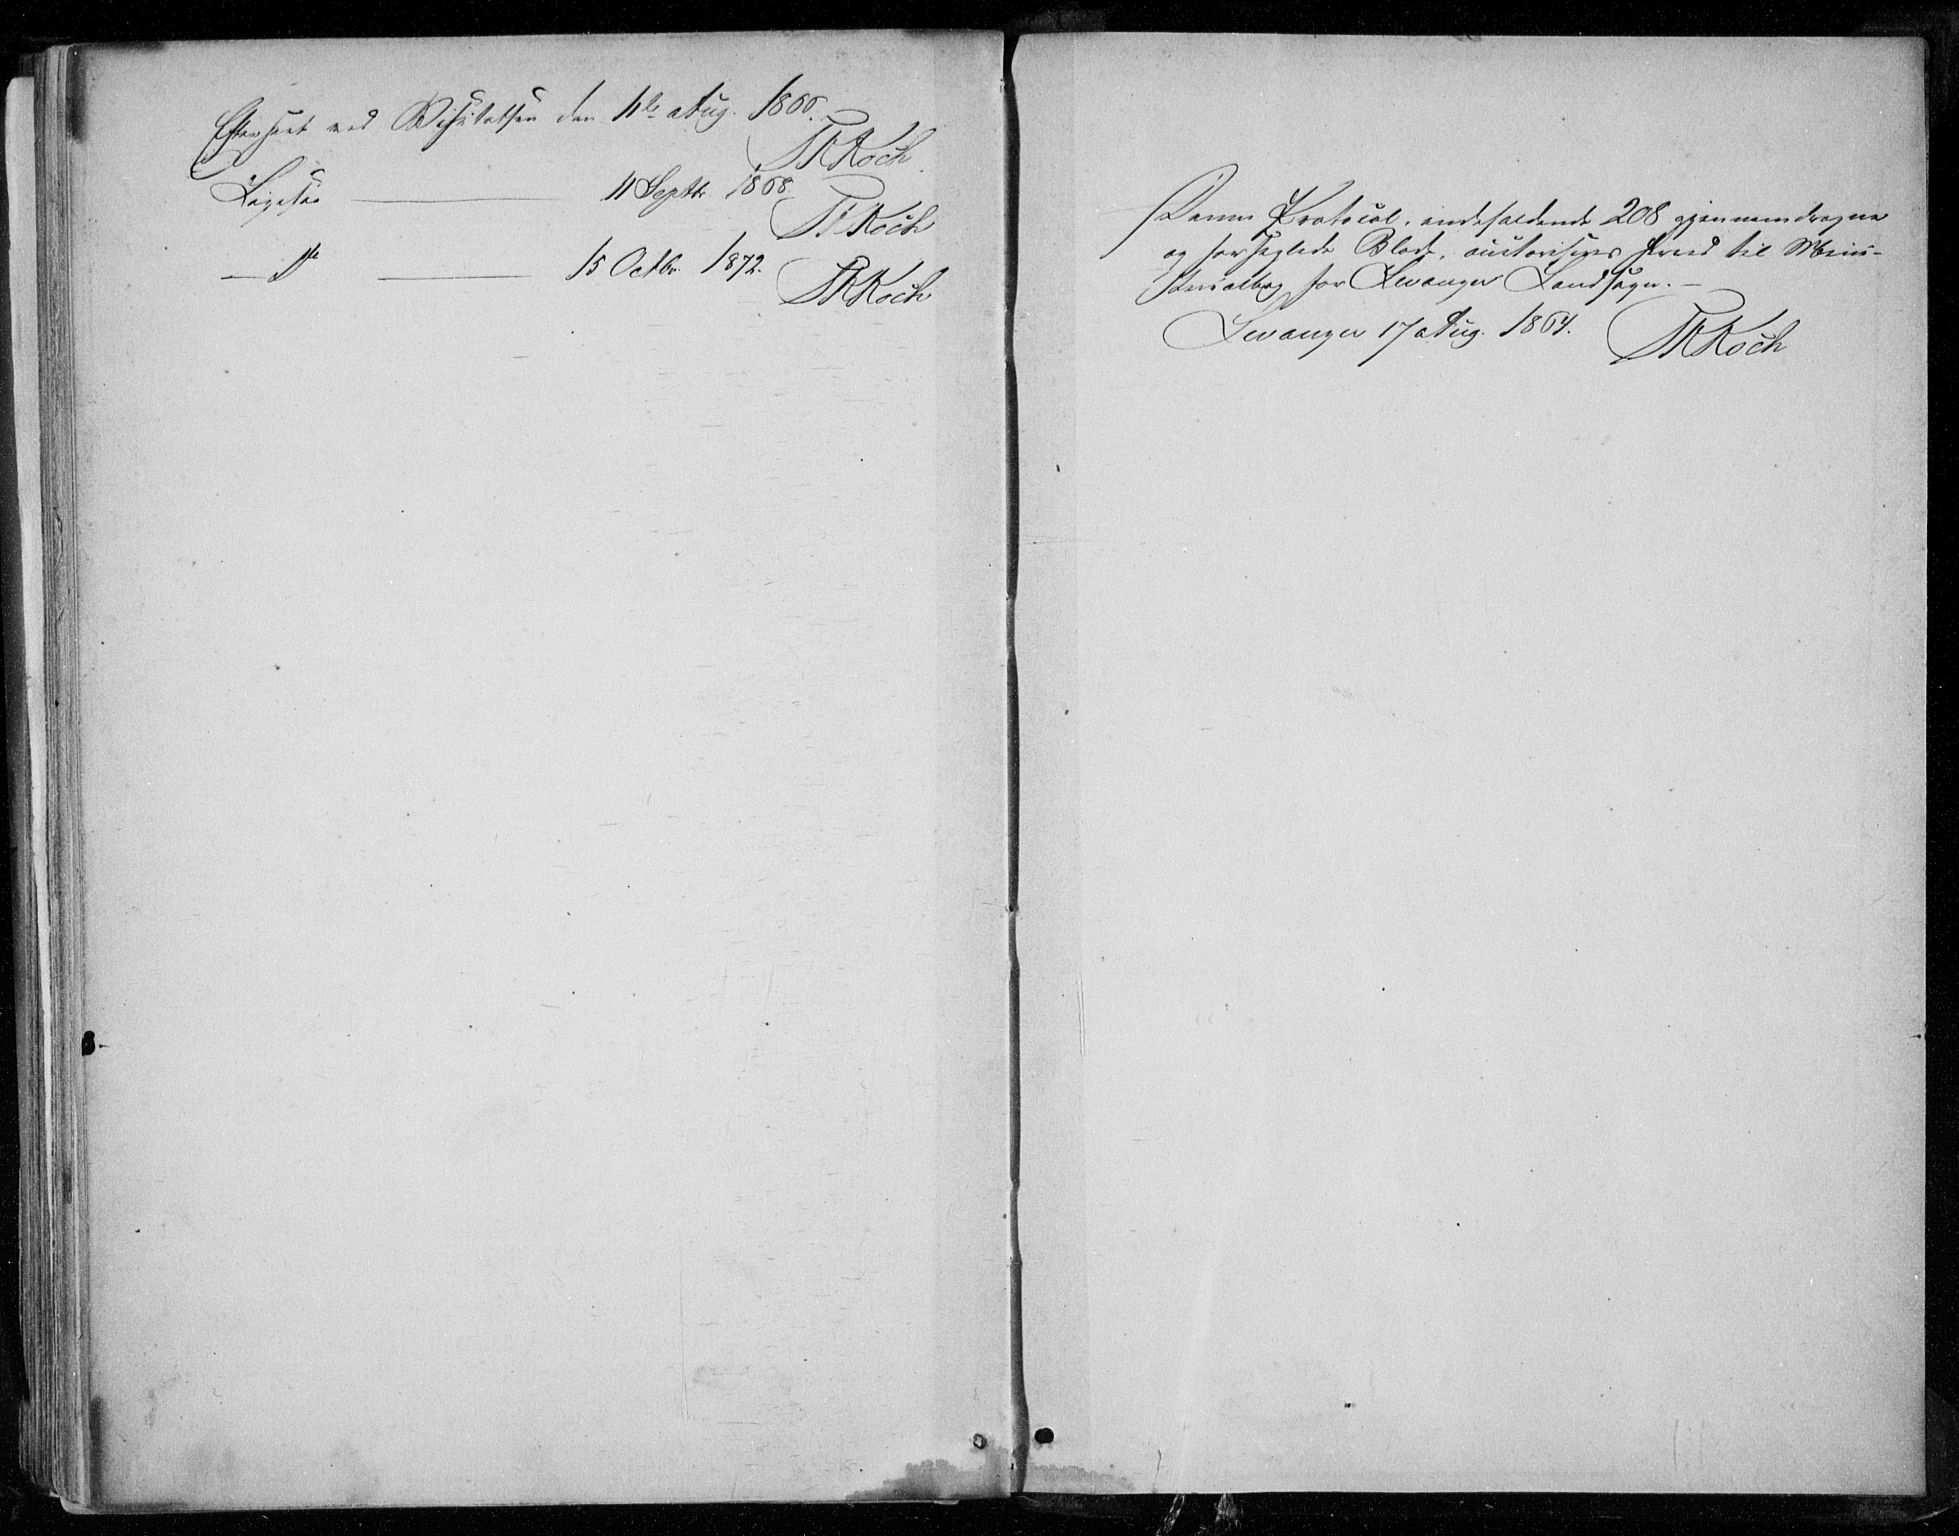 Efterseet ved Visitatsen den 11te Aug. 1866.
FRKoch
Ligesaa — 11 Septbr 1868.
FRKoch
— Do — 15 Octbr. 1872.
FRKoch
Denne Protocol, indeholdende 208 gjennemdragne
og forseglede Blade, autoriseres til Mini-
sterialbog for Levanger Landsogn. —
Levanger 17 Aug. 1864.
FRKoch